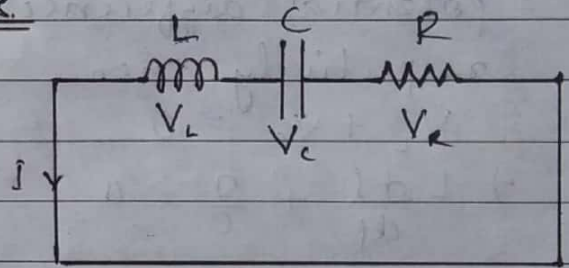 L C R
V_L V_C V_R
I